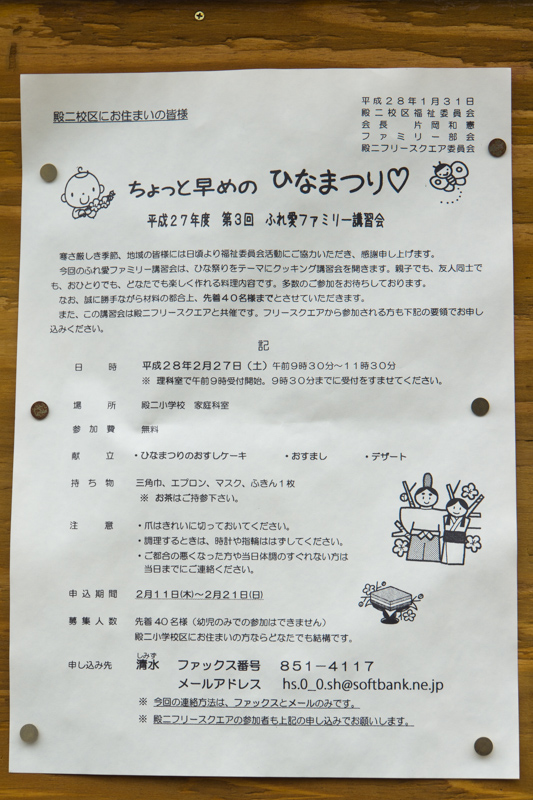 殿二校区にお住まいの皆様
平成28年1月31日
殿二校区福祉委員会
会長　片岡和憲
ファミリー部会
殿二フリースクエア委員会
ちょっと早めの ひなまつり♡
平成27年度　第3回　ふれ愛ファミリー講習会
寒さ厳しき季節、地域の皆様には日頃より福祉委員会活動にご協力いただき、感謝申し上げます。
今回のふれ愛ファミリー講習会は、ひな祭りをテーマにクッキング講習会を開きます。親子でも、友人同士で
も、おひとりでも、どなたでも楽しく作れる料理内容です。多数のご参加をお待ちしております。
なお、誠に勝手ながら材料の都合上、先着40名様までとさせていただきます。
また、この講習会は殿二フリースクエアと共催です。フリースクエアから参加される方も下記の要領でお申し
込みください。
記
日　時　平成28年2月27日（土）午前9時30分～11時30分
※ 理科室で午前9時受付開始。9時30分までに受付をすませてください。
場　所　殿二小学校　家庭科室
参加費　無料
献　立　・ひなまつりのおすしケーキ　・おすまし　・デザート
持ち物　三角巾、エプロン、マスク、ふきん1枚
※ お茶はご持参下さい。
注　意　・爪はきれいに切っておいてください。
・調理するときは、時計や指輪ははずしてください。
・ご都合の悪くなった方や当日体調のすぐれない方は
当日までにご連絡ください。
申込期間　2月11日(木)～2月21日(日)
募集人数　先着40名様（幼児のみでの参加はできません）
殿二小学校区にお住まいの方ならどなたでも結構です。
しみず
申し込み先　清水　ファックス番号　851－4117
メールアドレス　hs.0_0.sh@softbank.ne.jp
※ 今回の連絡方法は、ファックスとメールのみです。
※ 殿二フリースクエアの参加者も上記の申し込みでお願いします。